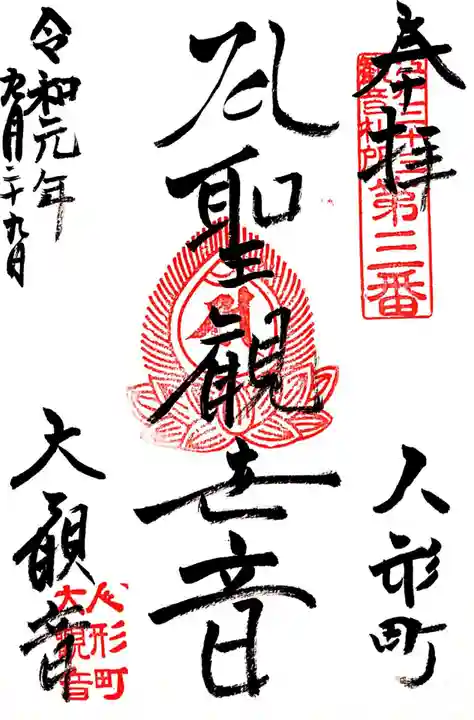 奉拝
觀音札所
第三番
人形町
聖観世音
令和元年
九月二十九日
大観音
人形町
大観音